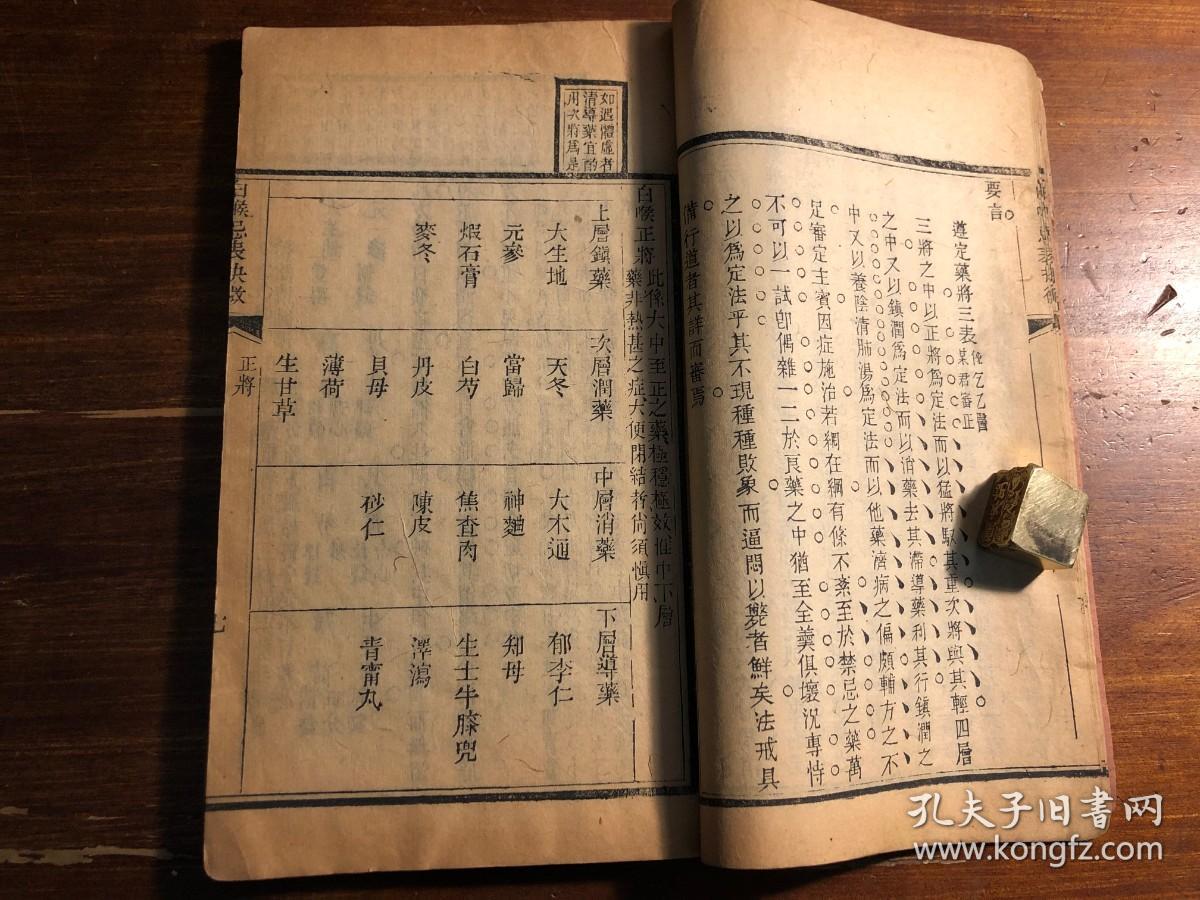 要言
遵定藥將三表
某君審正
三將之中以正將爲定法而以猛將馭其重次將與其輕四層
之中又以鎮潤爲定法而以消藥去其滯導藥利其行鎮潤之
中又以養陰清肺湯爲定法而以他藥濟病之偏頗輔方之不
足審定主賓因症施治若綱在綱有條不紊至於禁忌之藥萬
不可以一試卽偶雜一二於良藥之中猶至全羹俱壞況專恃
之以爲定法乎其不現種種敗象而逼悶以斃者鮮矣法戒具
備行道者其詳而審焉
如遇體虛者
清導藥宜酌
用次將爲是
白喉正將
此係大中至正之藥極穩極效惟中下層
藥非熱甚之症大便閉結者尙須愼用
上層鎮藥
大生地
元參
煆石膏
麥冬
次層潤藥
天冬
當歸
白芍
丹皮
貝母
薄荷
生甘草
中層消藥
大木通
神麯
焦查肉
陳皮
砂仁
下層導藥
郁李仁
知母
生土牛膝兜
澤瀉
青甯丸
白喉忌表抉微
正將
七
孔夫子旧书网
www.kongfz.com